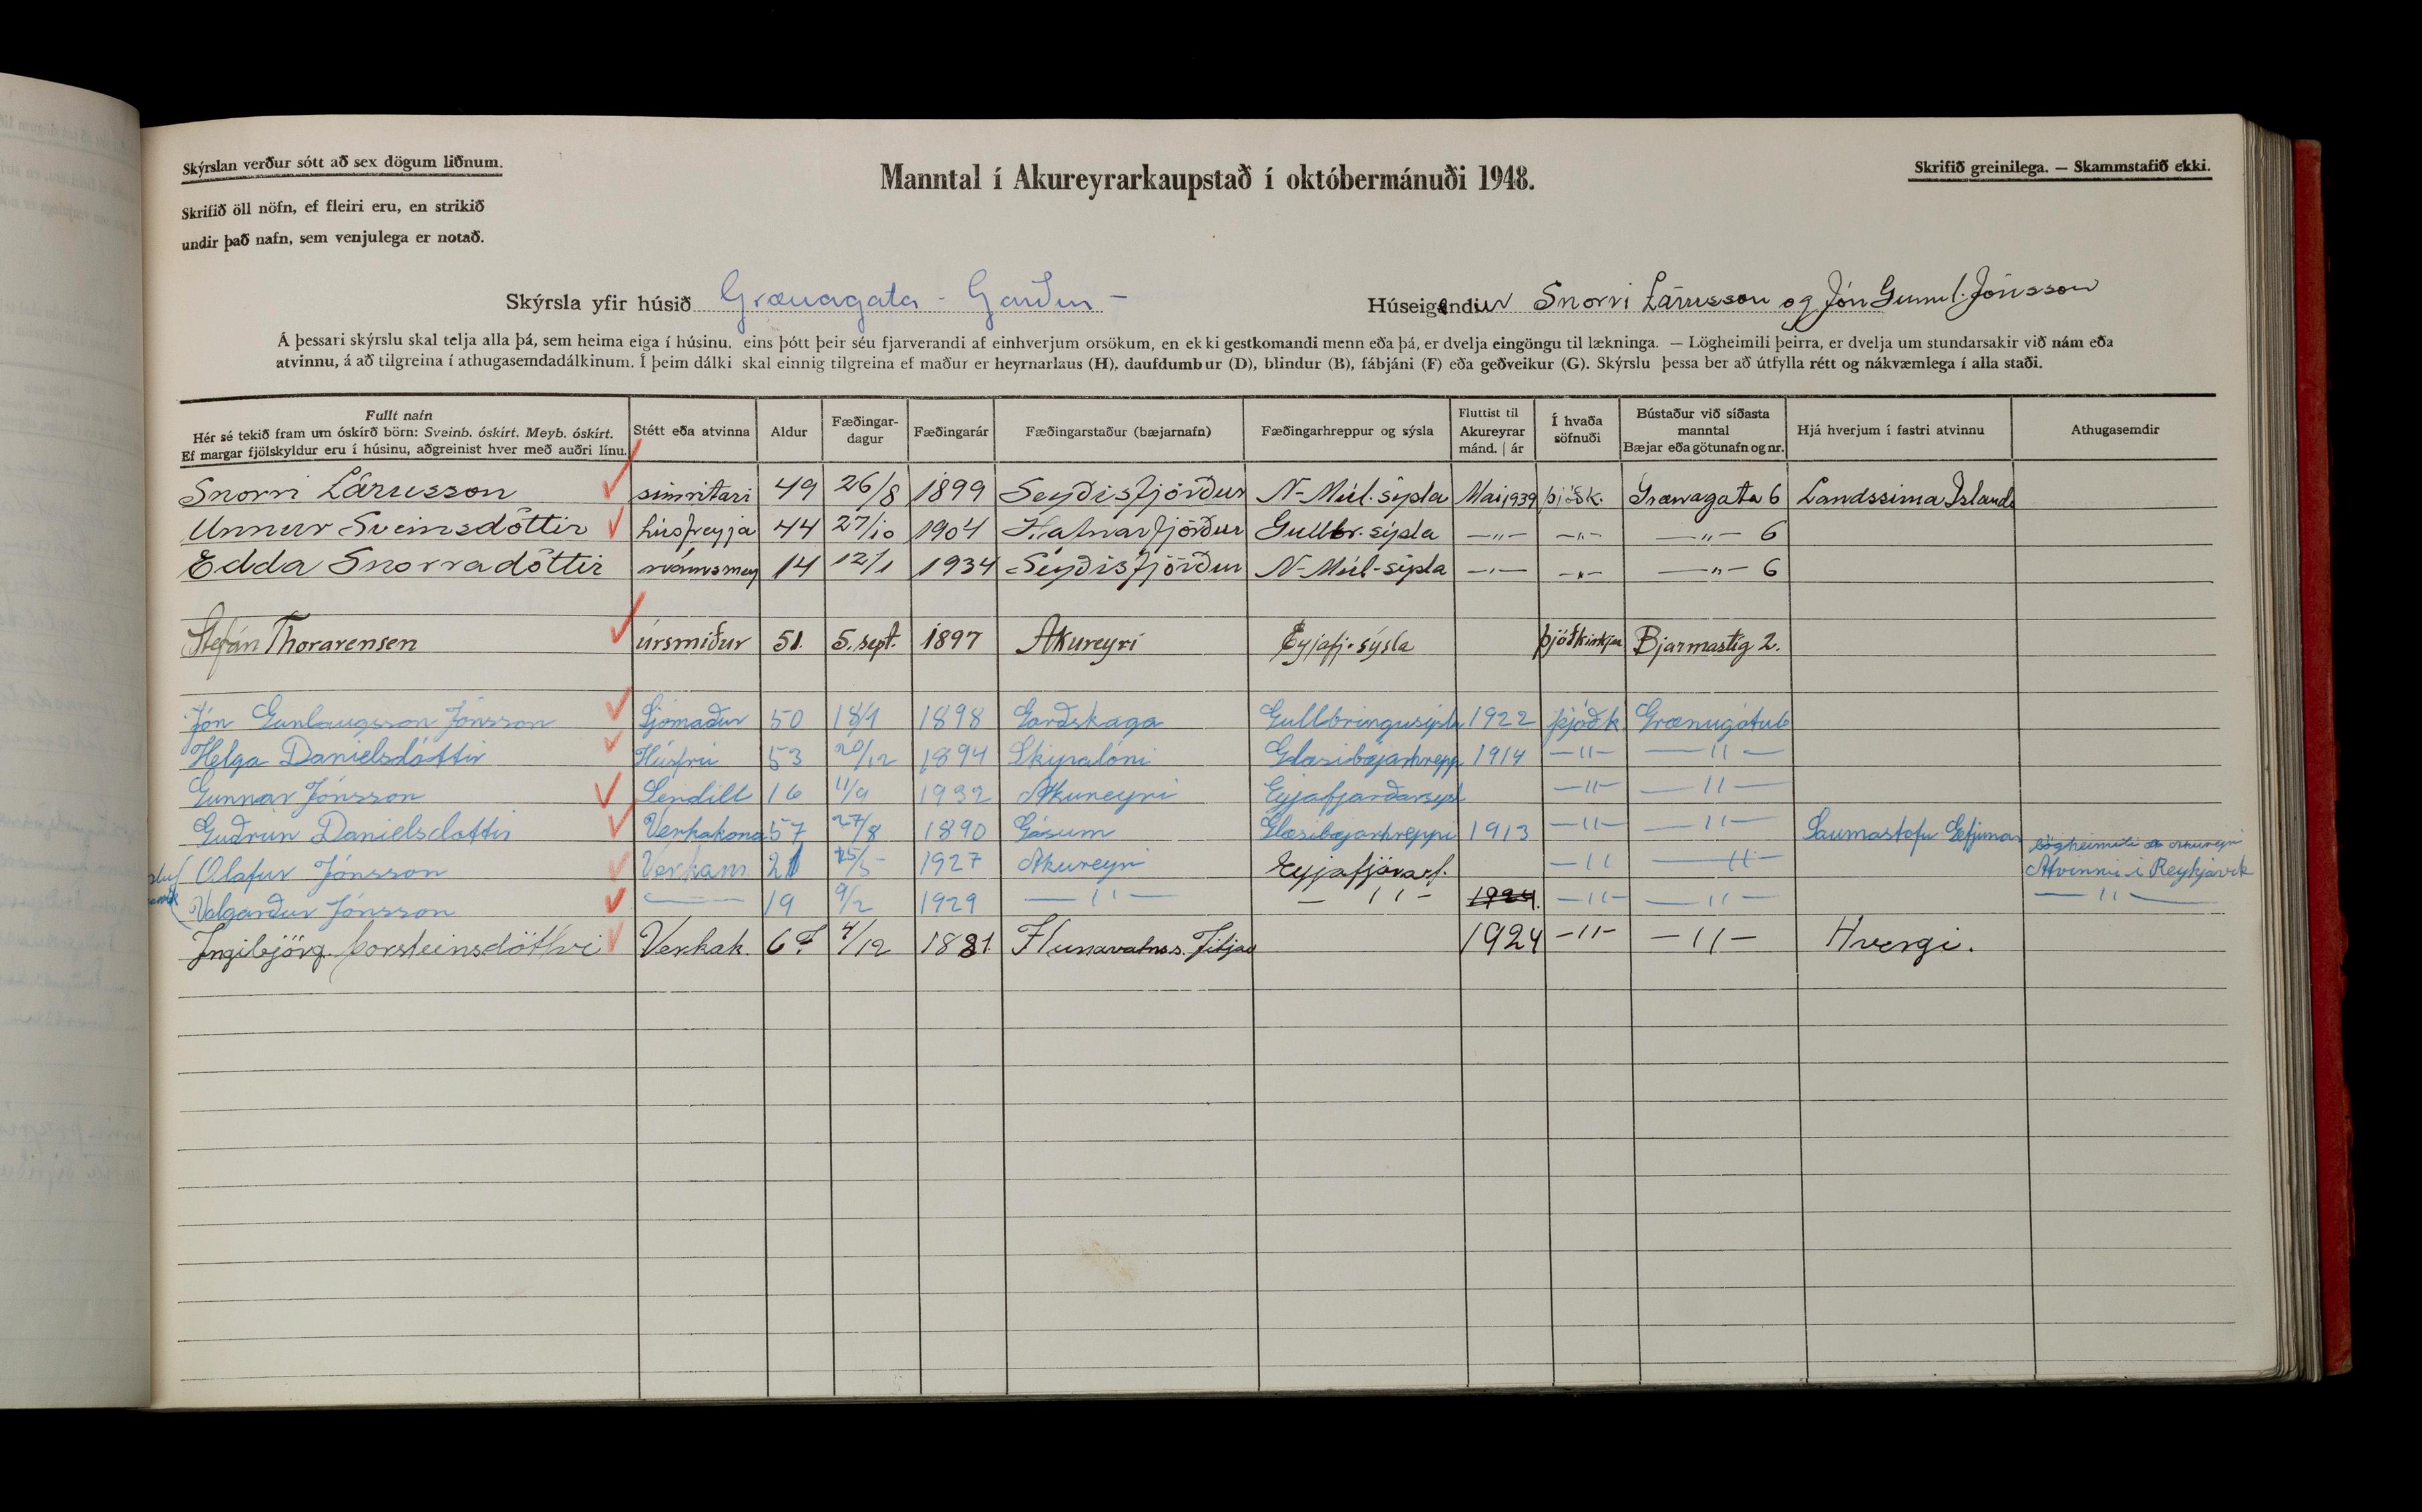 Skýrslan verður sótt að sex dögum liðnum.
Manntal í Akureyrarkaupstað í októbermánuði 1948.
Skrifið greinilega. — Skammstafið ekki.
Skrifið öll nöfn, ef fleiri eru, en strikið
undir það nafn, sem venjulega er notað.
Skýrsla yfir húsið Grænagata - Garður - Húseigendur Snorri Lárusson og Jón Gunnl. Jónsson
Á þessari skýrslu skal telja alla þá, sem heima eiga í húsinu, eins þótt þeir séu fjarverandi af einhverjum orsökum, en ekki gestkomandi menn eða þá, er dvelja eingöngu til lækninga. — Lögheimili þeirra, er dvelja um stundarsakir við nám eða
atvinnu, á að tilgreina í athugasemdadálkinum. Í þeim dálki skal einnig tilgreina ef maður er heyrnarlaus (H), daufdumbur (D), blindur (B), fábjáni (F) eða geðveikur (G). Skýrslu þessa ber að útfylla rétt og nákvæmlega í alla staði.
Fullt nafn
Hér sé tekið fram um óskírð börn: Sveinb. óskírt. Meyb. óskírt.
Ef margar fjölskyldur eru í húsinu, aðgreinist hver með auðri línu.
Stétt eða atvinna
Aldur
Fæðingar-
dagur
Fæðingarár
Fæðingarstaður (bæjarnafn)
Fæðingarhreppur og sýsla
Fluttist til
Akureyrar
mánd. | ár
Í hvaða
söfnuði
Bústaður við síðasta
manntal
Bæjar eða götunafn og nr.
Hjá hverjum í fastri atvinnu
Athugasemdir
Snorri Lárusson símritari 49 26/8 1899 Seyðisfjörður N-Múl. sýsla Mai 1939 þjóðk. Grænagata 6 Landssima Íslands
Unnur Sveinsdóttir húsfreyja 44 27/10 1904 Hafnarfjörður Gullbr. sýsla —"— —"— —"— 6
Edda Snorradóttir námsmey 14 12/1 1934 Seyðisfjörður N-Múl-sýsla —"— —"— —"— 6
Stefán Thorarensen úrsmiður 51. 5. sept. 1897 Akureyri Eyjafj. sýsla þjóðkirkjan Bjarmastíg 2.
Jón Gunlaugsson Jónsson Sjómaður 50 18/1 1898 Garðskaga Gullbringusýsla 1922 þjóðk. Grænugötu 6
Helga Danielsdóttir Húsfrú 53 20/12 1894 Skipalóni Glæsibæjarhrepp 1914 —"— —"—
Gunnar Jónsson Sendill 16 11/9 1932 Akureyri Eyjafjarðarsysl —"— —"—
Guðrún Danielsdottir Verkakona 57 27/8 1890 Gásum Glæsibæjarhreppi 1913 —"— —"— Saumastofu Gefjunar
Olafur Jónsson Verkam 21 25/5 1927 Akureyri Eyjafjarð. —"— —"— Lögheimili á Akureyri
Atvinnu í Reykjavík
Valgarður Jónsson —— 19 9/2 1929 —"— —"— 1924. —"— —"— —"—
Ingibjörg Þorsteinsdóttir Verkak. 67 4/12 1881 Hunavatnss. Fitjar 1924 —"— —"— Hvergi.